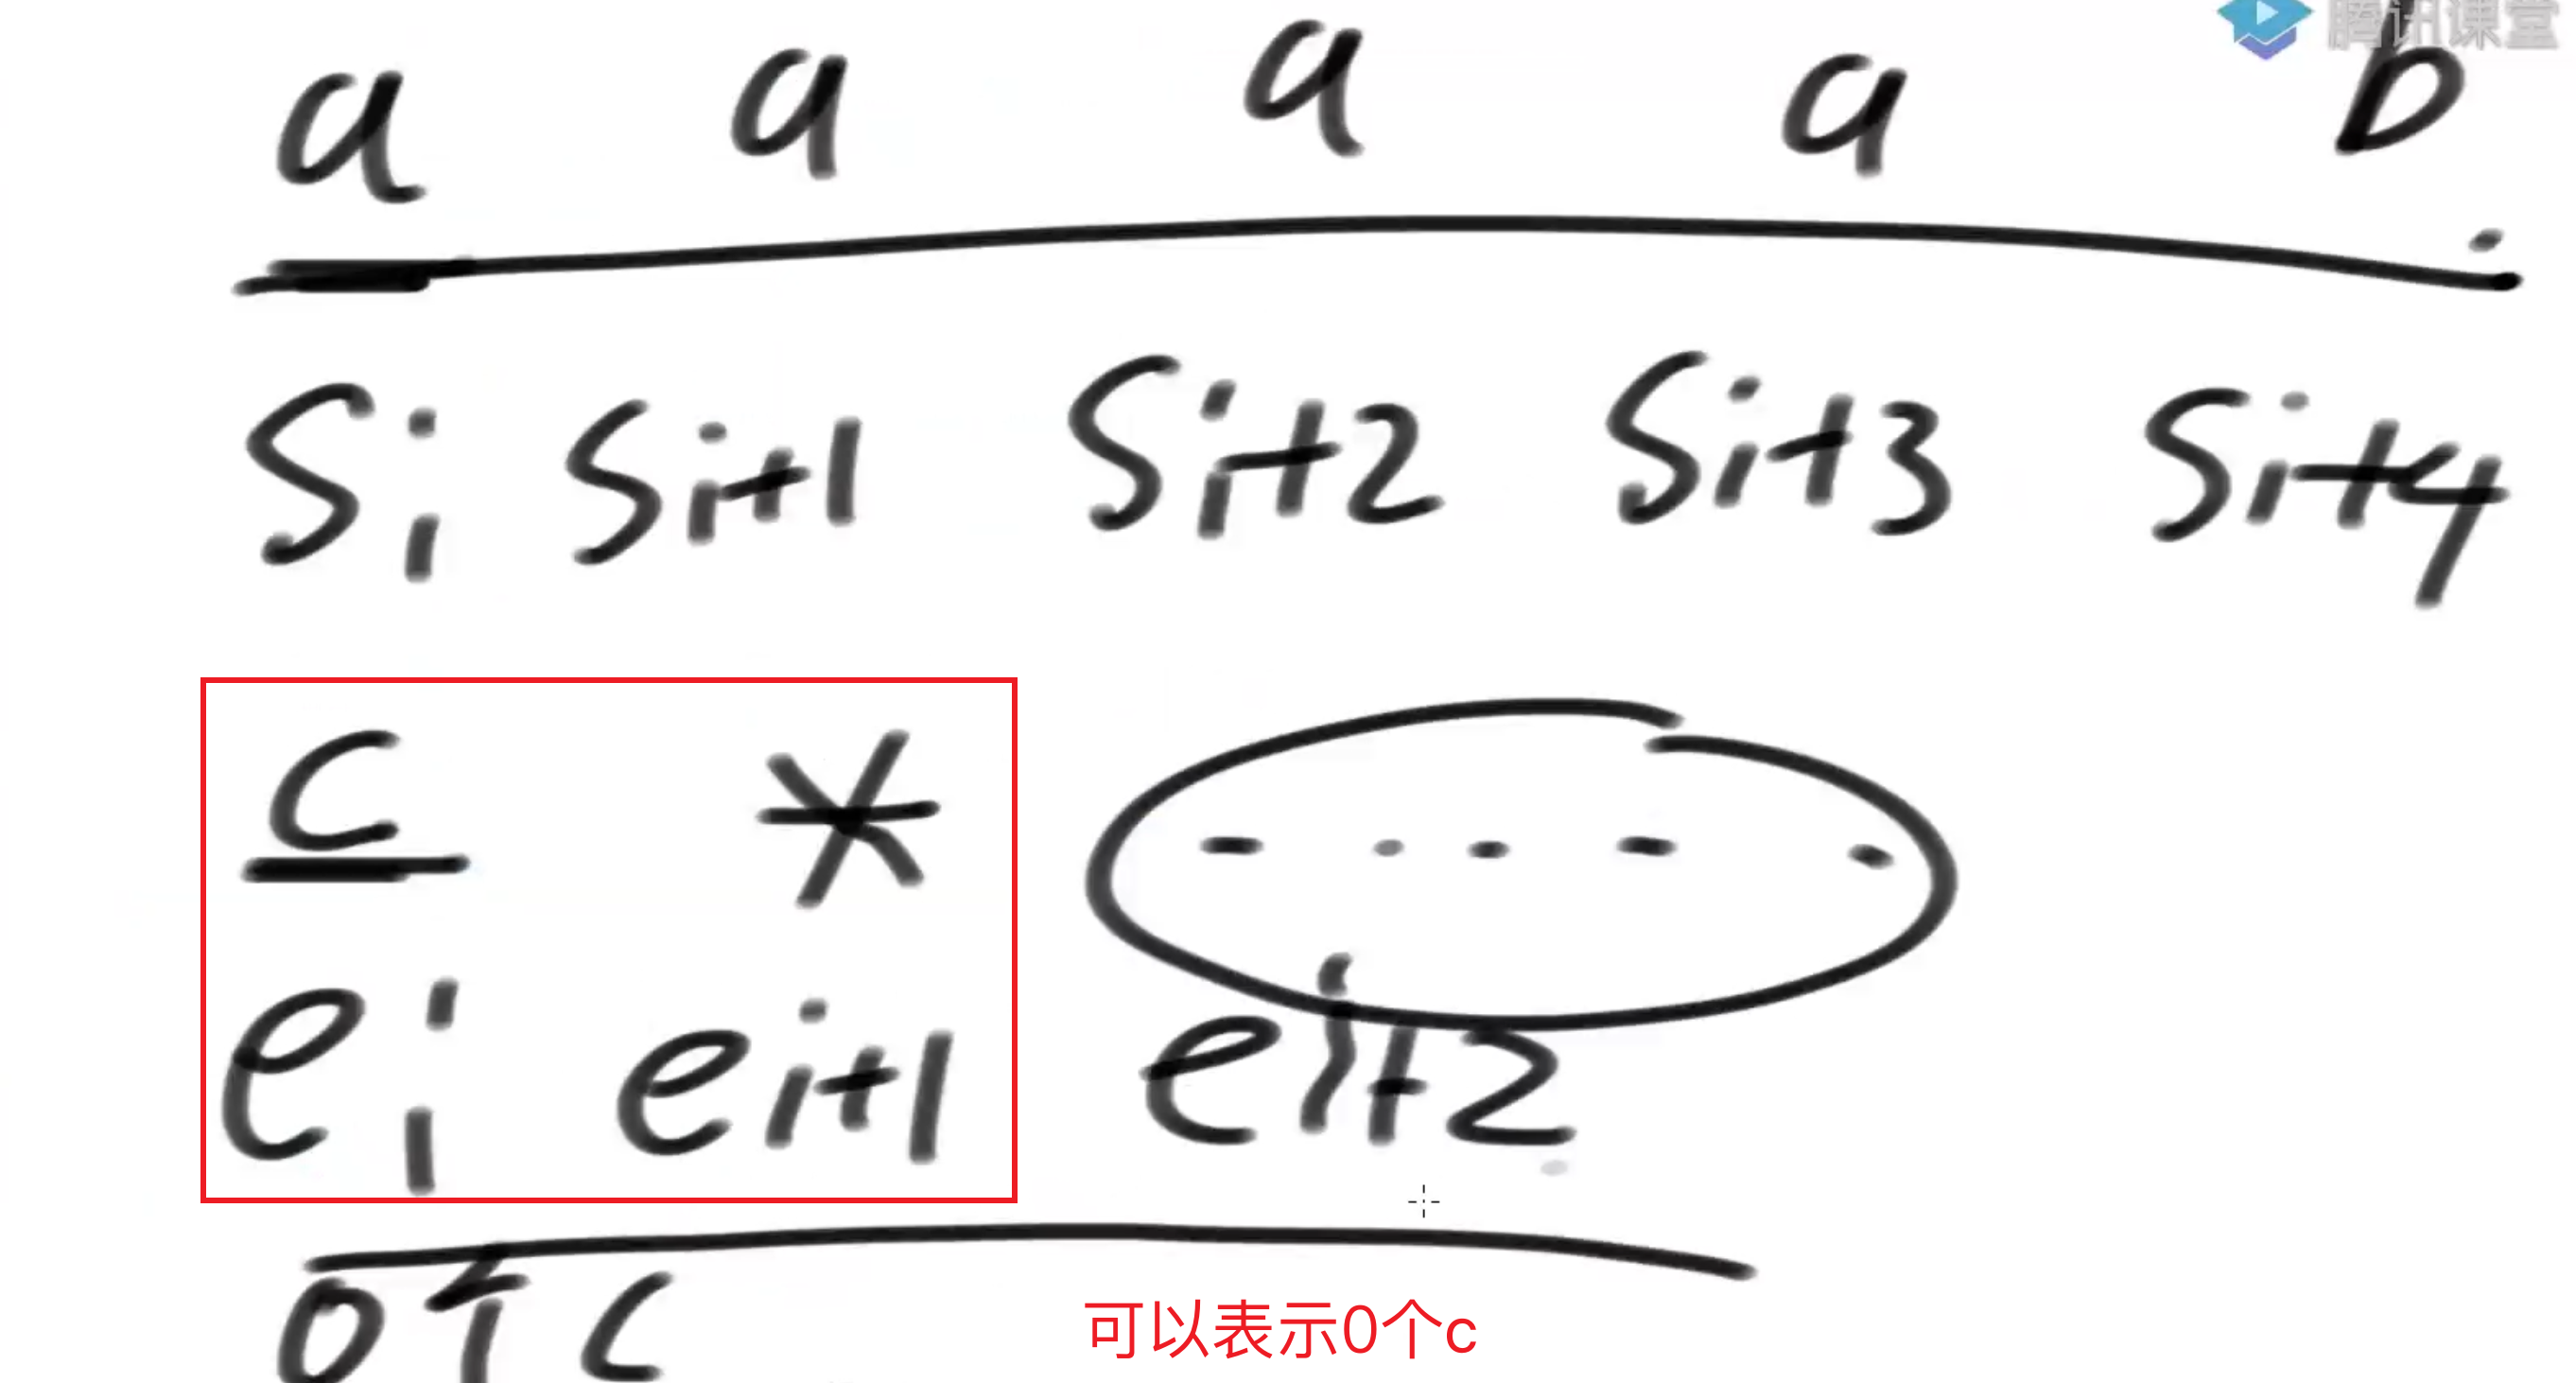 腾讯课堂
a a a a b
Si Si+1 Si+2 Si+3 Si+4
c *
ei ei+1 ei+2
0个c
可以表示0个c